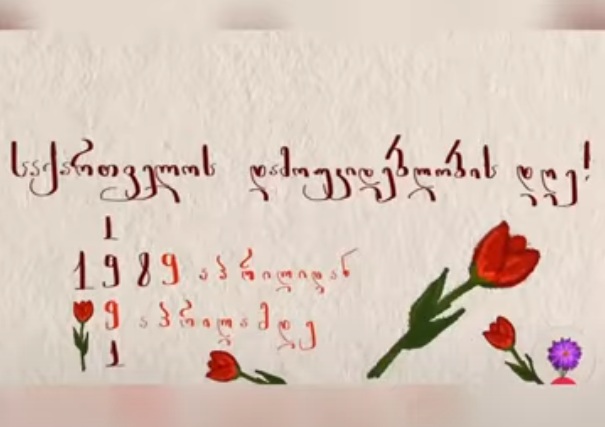 საქართველოს დამოუკიდებლობის დღე!
1
1989 აპრილიდან
9 აპრილამდე
1